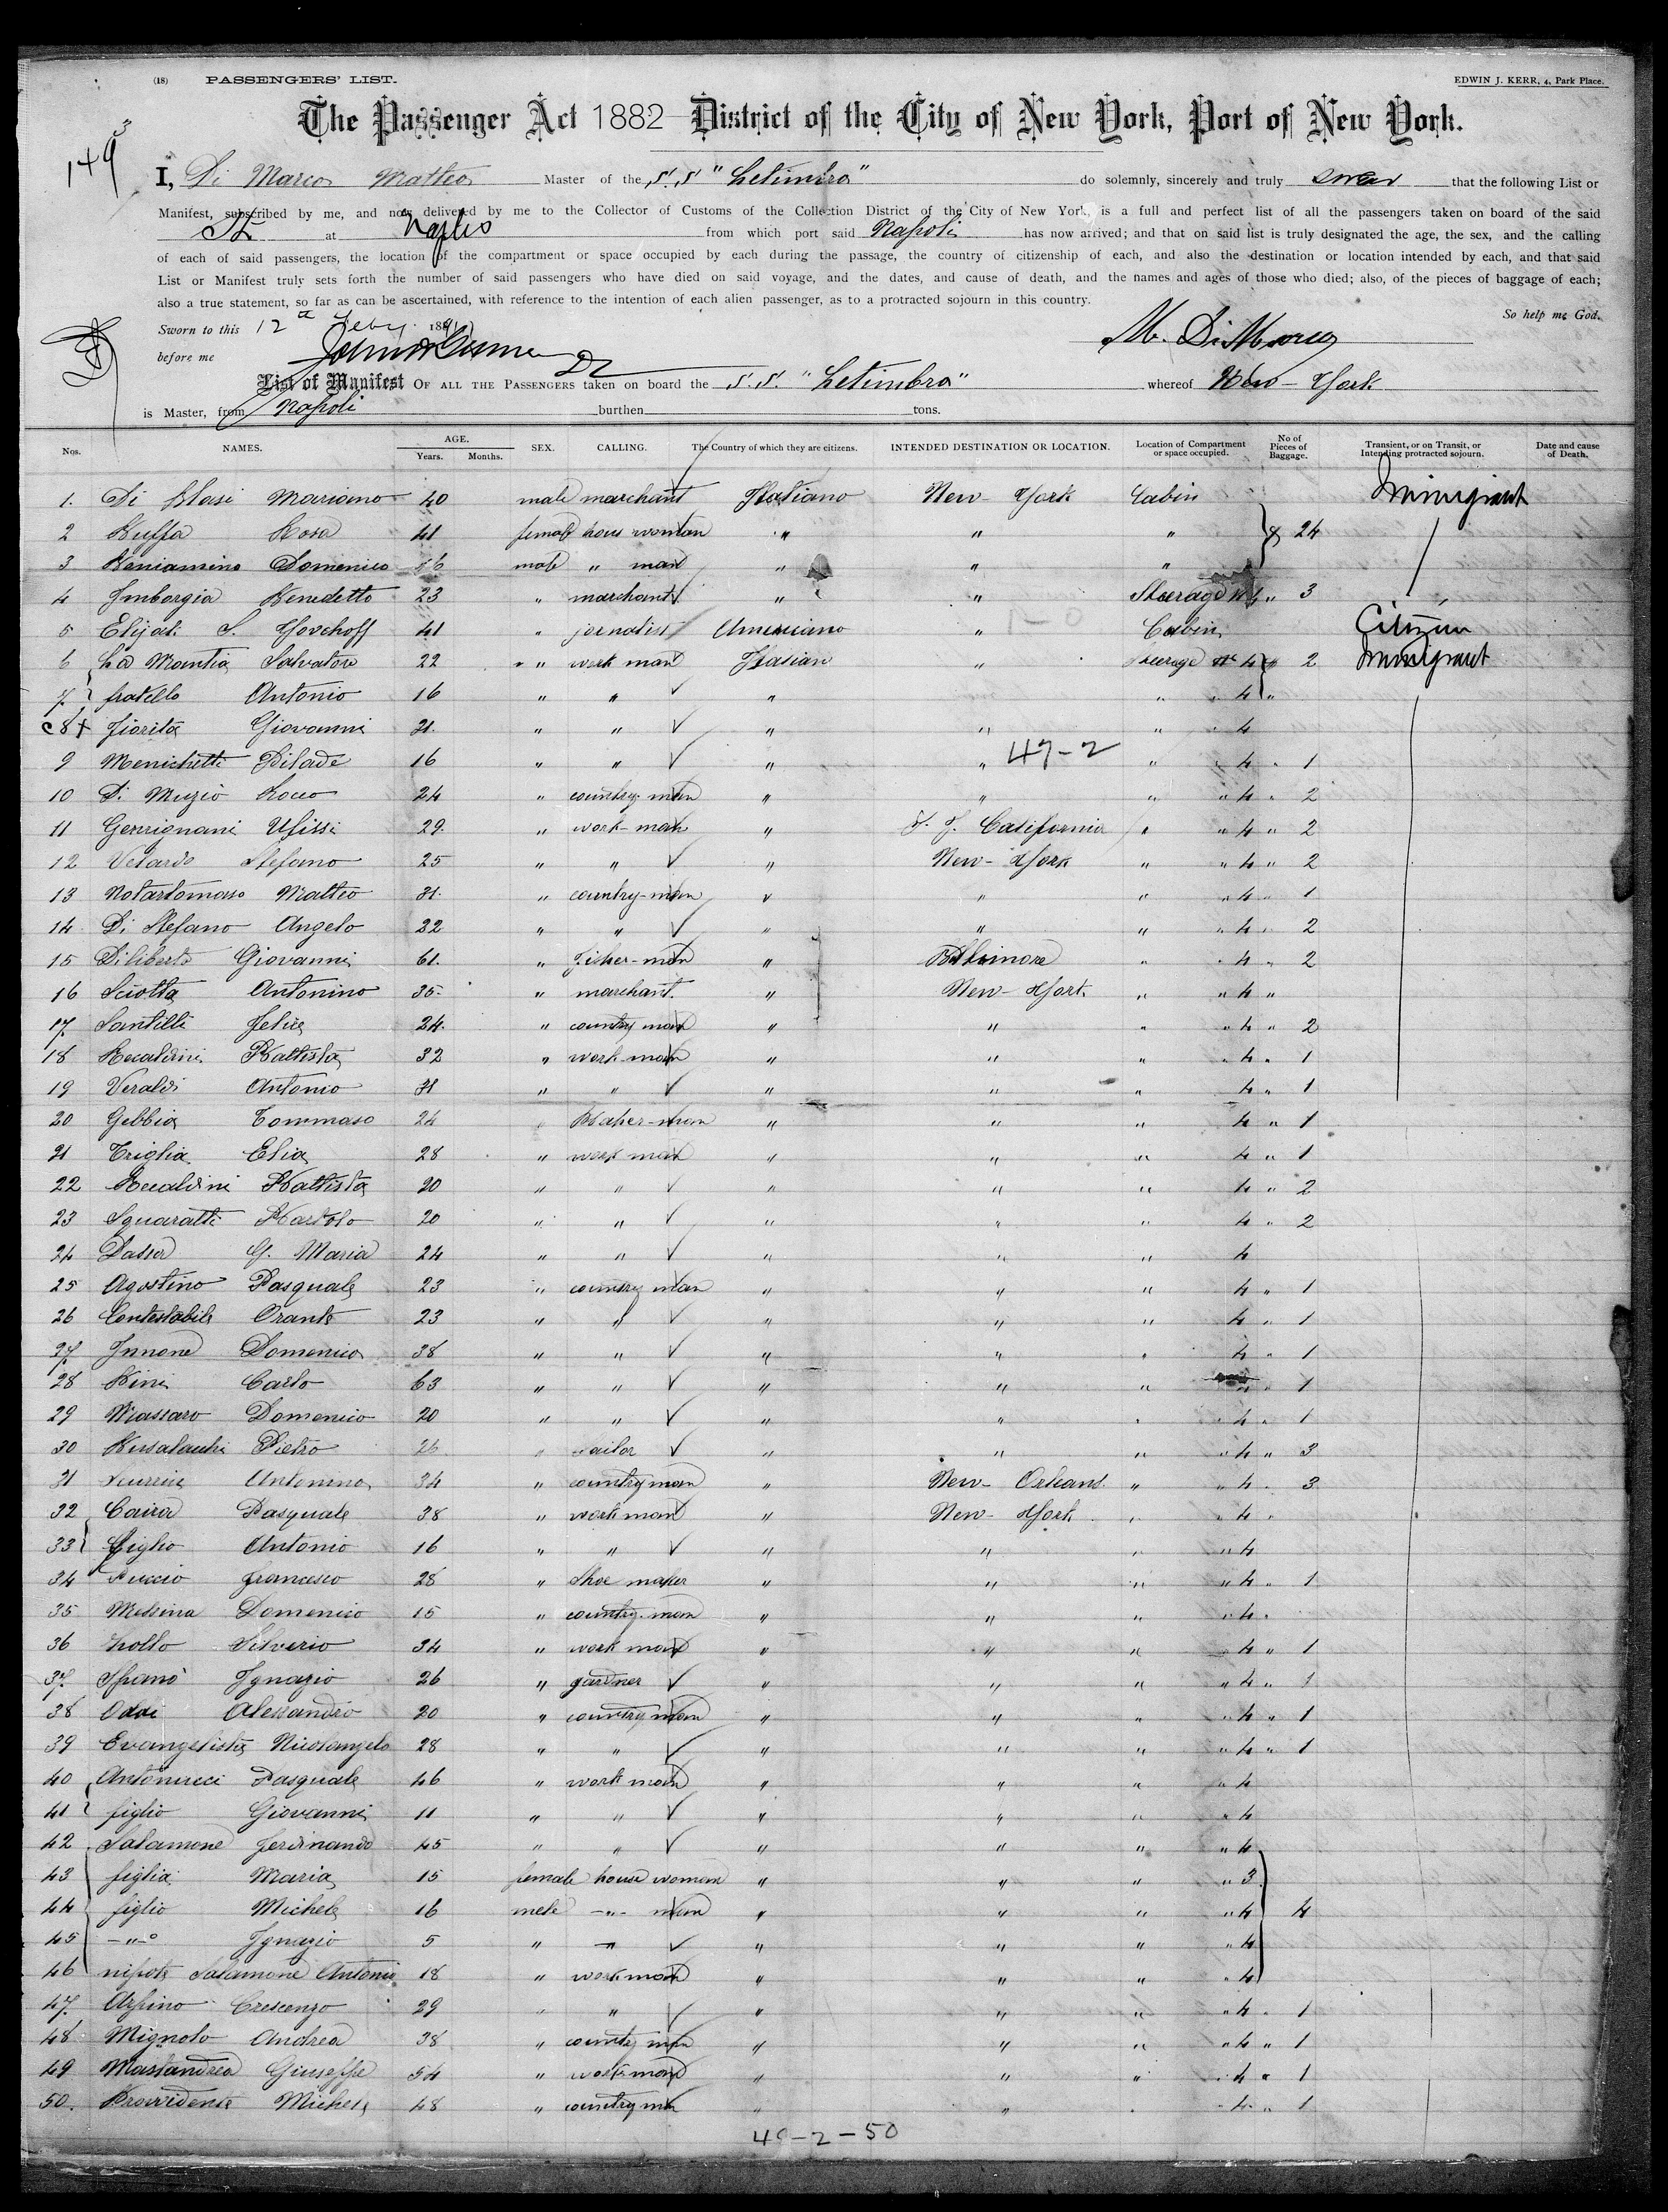 (18) PASSENGERS' LIST.
EDWIN J. KERR, 4, Park Place.
The Passenger Act 1882 District of the City of New York, Port of New York.
149
3
I, Di Marco Matteo Master of the S.S "Letimbro" do solemnly, sincerely and truly swear that the following List or
Manifest, subscribed by me, and now delivered by me to the Collector of Customs of the Collection District of the City of New York, is a full and perfect list of all the passengers taken on board of the said
at Naples from which port said Napoli has now arrived; and that on said list is truly designated the age, the sex, and the calling
of each of said passengers, the location of the compartment or space occupied by each during the passage, the country of citizenship of each, and also the destination or location intended by each, and that said
List or Manifest truly sets forth the number of said passengers who have died on said voyage, and the dates, and cause of death, and the names and ages of those who died; also, of the pieces of baggage of each;
also a true statement, so far as can be ascertained, with reference to the intention of each alien passenger, as to a protracted sojourn in this country.
So help me God.
Sworn to this 12th Feby. 1891
before me
M. Di Marco
List of Manifest OF ALL THE PASSENGERS taken on board the S.S. "Letimbro" whereof New-York
is Master, from Napoli burthen tons.
Nos. NAMES. AGE. Years. Months. SEX. CALLING. The Country of which they are citizens. INTENDED DESTINATION OR LOCATION. Location of Compartment or space occupied. No of Pieces of Baggage. Transient, or on Transit, or Intending protracted sojourn. Date and cause of Death.
1. Di Blasi Mariano 40 male marchant Italiano New-York Cabin Immigrant
2 Buffa Rosa 41 female hous woman " " " 24
3 Beniamino Domenico male " man " " "
4 Imborgia Benedetto 23 " marchant " " Steerage No 4 " 3
5 Elijah S. Hovchoff 41 " jornalist Americano " Cabin Citizen
6 La Mantia Salvatore 22 " work man Italian " Steerage No 4 " 2 Immigrant
7. fratello Antonio 16 " " " " 4 "
8 + Fiorita Giovanni 31. " " " " " " 4
9 Menichetti Pilade 16 " " " " 47-2 " " 4 " 1
10 Di Muzio Rocco 24 " country-man " " " " 4 " 2
11 Gemignani Ulissi 29. " work-man " S. F. California " " 4 " 2
12 Velardo Stefano 25 " " " New-York " " 4 " 2
13 Notartomaso Matteo 31. " country-man " " " " 4 " 1
14 Di Stefano Angelo 22 " " " " " " 4 " 2
15 Diliberto Giovanni 61. " Fisher-man " Baltimore " " 4 " 2
16 Sciotta Antonino 35. " marchant. " New-York. " " 4 "
17. Santilli Felice 24. " country man " " " " 4 " 2
18 Recaldini Battista 32 " work-man " " " " 4 " 1
19 Veraldi Antonio 31 " " " " " 4 " 1
20 Gebbia Tommaso 24 " Baker-man " " " 4 " 1
21 Triglia Elia 28 " work man " " " 4 " 1
22 Recaldini Battista 20 " " " " " 4 " 2
23 Squaratti Bartolo 20 " " " " " 4 " 2
24 Dasser G. Maria 24 " " " " " 4
25 Agostino Pasquale 23 " country man " " " 4 " 1
26 Contestabile Oronte 23 " " " " " 4 " 1
27. Innone Domenico 38 " " " " " 4 " 1
28 Bini Carlo 63 " " " " " " 1
29 Massaro Domenico 20 " " " " " " 4 " 1
30 Pietro 26 " sailor " " " " 4 " 3
31 Antonino 34 " country man " New-Orleans. " " 4 " 3
32 Caira Pasquale 38 " work man " New-York " " 4 "
33 figlio Antonio 16 " " " " " " 4
34 Puccio Francesco 28 " Shoe maker " " " " 4 " 1
35 Messina Domenico 15 " country-man " " " " 4 "
36 Lollo Silverio 34 " work man " " " 4 " 1
37. Spanò Ignazio 26 " gardner " " " 4 " 1
38 Oddi Alessandro 20 " country man " " " " 4 " 1
39 Evangelista Nicolangelo 28 " " " " " " 4 " 1
40 Antonucci Pasquale 46 " work man " " " " 4
41 figlio Giovanni 11 " " " " " " 4
42 Salamone Ferdinando 45 " " " " " " 4
43 figlia Maria 15 female house woman " " " " 3
44 figlio Michele 16 male -"- man " " " " 4 4
45 -"-° Ignazio 5 " -"- " " " " 4
46 nipote Salamone Antonio 18 " work man " " " " 4
47. Arpino Crescenzo 29 " " " " " " 4 " 1
48 Mignolo Andrea 38 " country man " " " " 4 " 1
49 Mastandrea Giuseppe 54 " workman " " " " 4 " 1
50. Provvidente Michele 48 " country man " " " " 4 " 1
-2-50